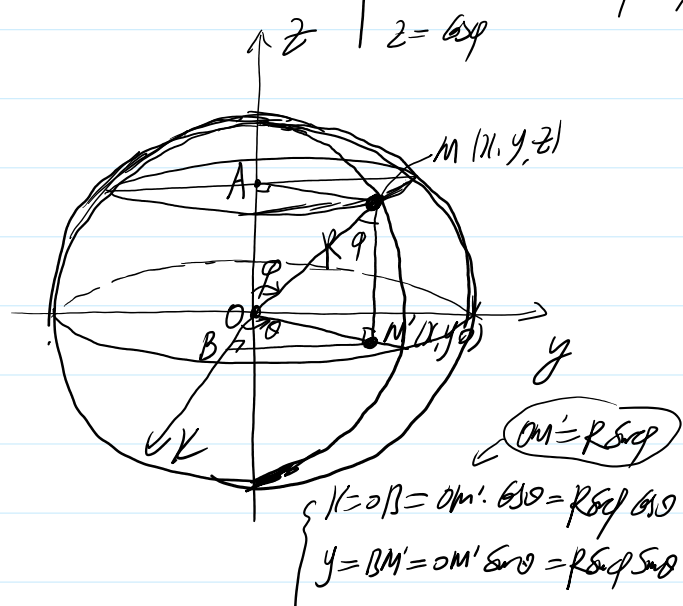 z
z = cosφ
M (x, y, z)
A
R φ
φ
O
θ
B
M' (x, y, 0)
y
x
OM' = R sinφ
x = OB = OM' · cosθ = R sinφ cosθ
y = BM' = OM' sinθ = R sinφ sinθ